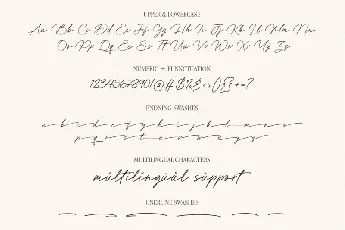 UPPER & LOWERCASE
Aa Bb Cc Dd Ee Ff Gg Hh Ii Jj Kk Ll Mm Nn
Oo Pp Qq Rr Ss Tt Uu Vv Ww Xx Yy Zz
NUMERIC + PUNCTUATION
1234567890!@#$%&<>(){}+=?
ENDNING SWASHES
a b c d e f g h i j k l m n
p q r s t u v w x y z
MULTILINGUAL CHARACTERS
multilingual support
UNDERLINE SWASHES